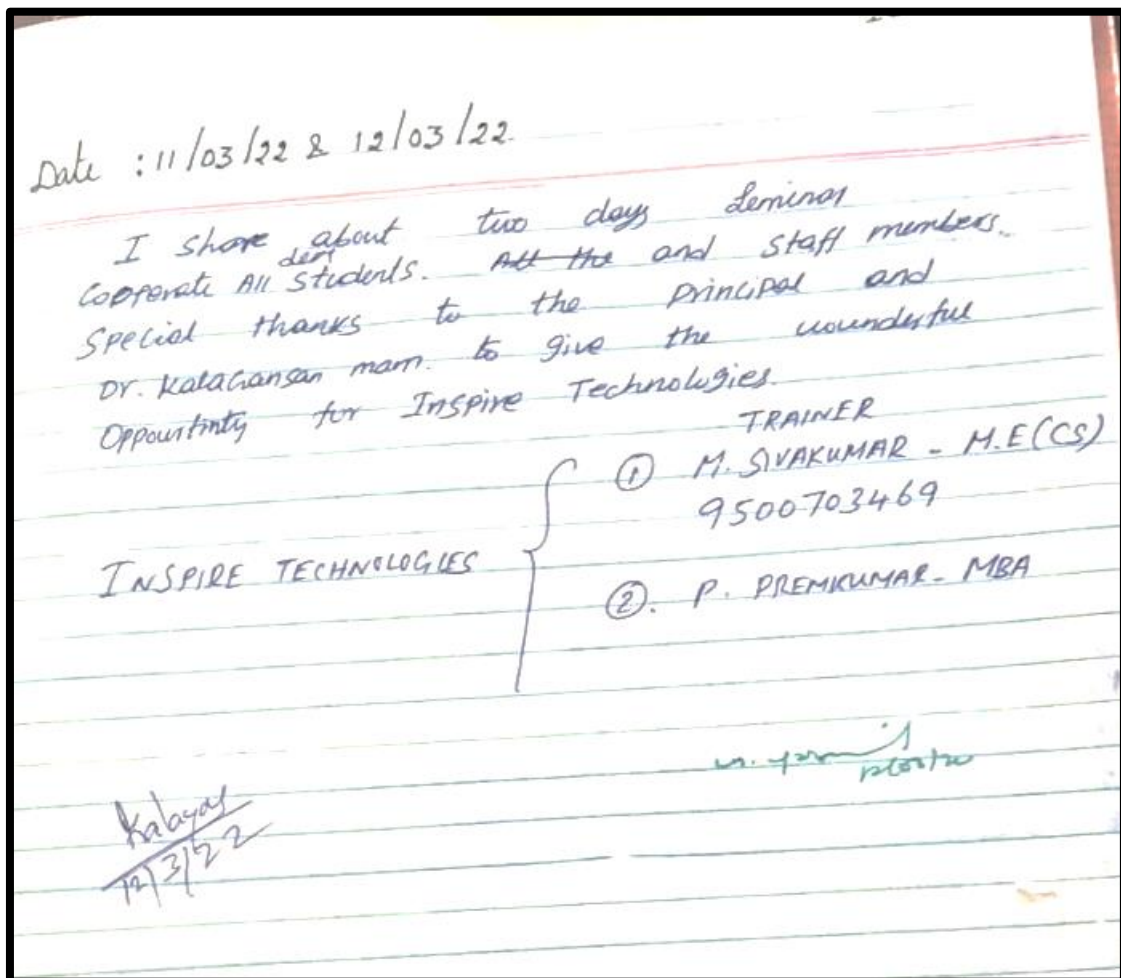 Date : 11/03/22 & 12/03/22
I share about two days Seminar
Cooperate All dear Students. All the and Staff members.
Special thanks to the Principal and
Dr. Kalaransan mam. to give the wounderful
Oppourtinty for Inspire Technologies.
TRAINER
INSPIRE TECHNOLOGIES
① M. SIVAKUMAR - M.E (CS)
9500703469
②. P. PREMKUMAR - MBA
12/3/22